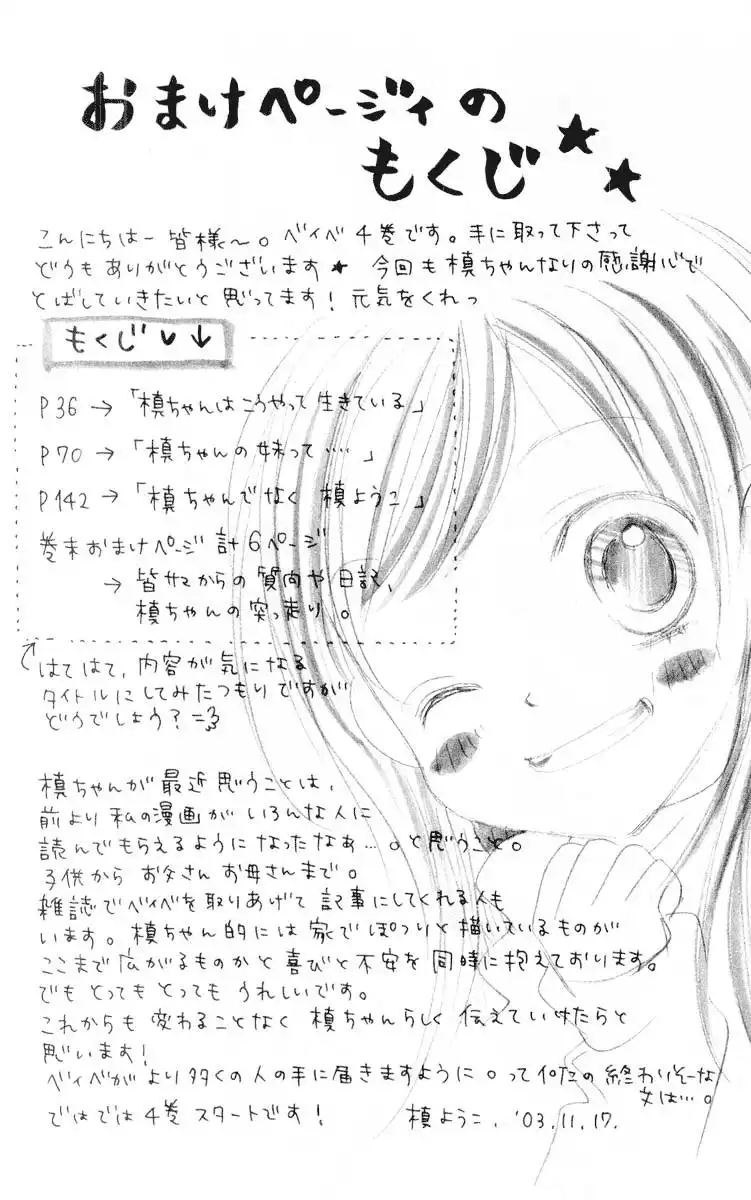 おまけページィの
もくじ★★★
こんにちはー皆様〜。ベイベ4巻です。手に取って下さって
どうもありがとうございます★ 今回も槙ちゃんなりの感謝心で
とばしていきたいと思ってます!元気をくれっ
もくじ♥↓
P36→「槙ちゃんはこうやって生きている」
P70→「槙ちゃんの妹って……」
P142→「槙ちゃんでなく 槙ようこ」
巻末おまけページ 計6ページ
→ 皆サマからの質問や日記、
槙ちゃんの突っ走り。
はてはて、内容が気になる
タイトルにしてみたつもりですが
どうでしょう?
槙ちゃんが最近思うことは、
前より私の漫画がいろんな人に
読んでもらえるようになったなぁ…。と思うこと。
子供から お父さん お母さんまで。
雑誌でベイベを取りあげて記事にしてくれる人も
います。槙ちゃん的には家でぽつりと描いているものが
ここまで広がるものかと喜びと不安を同時に抱えております。
でも とっても とっても うれしいです。
これからも 変わることなく 槙ちゃんらしく 伝えていけたらと
思います!
ベイベがより多くの人の手に届きますように。って何だの終わりそーな
文は…。
ではでは4巻 スタートです!
槙ようこ. '03.11.17.